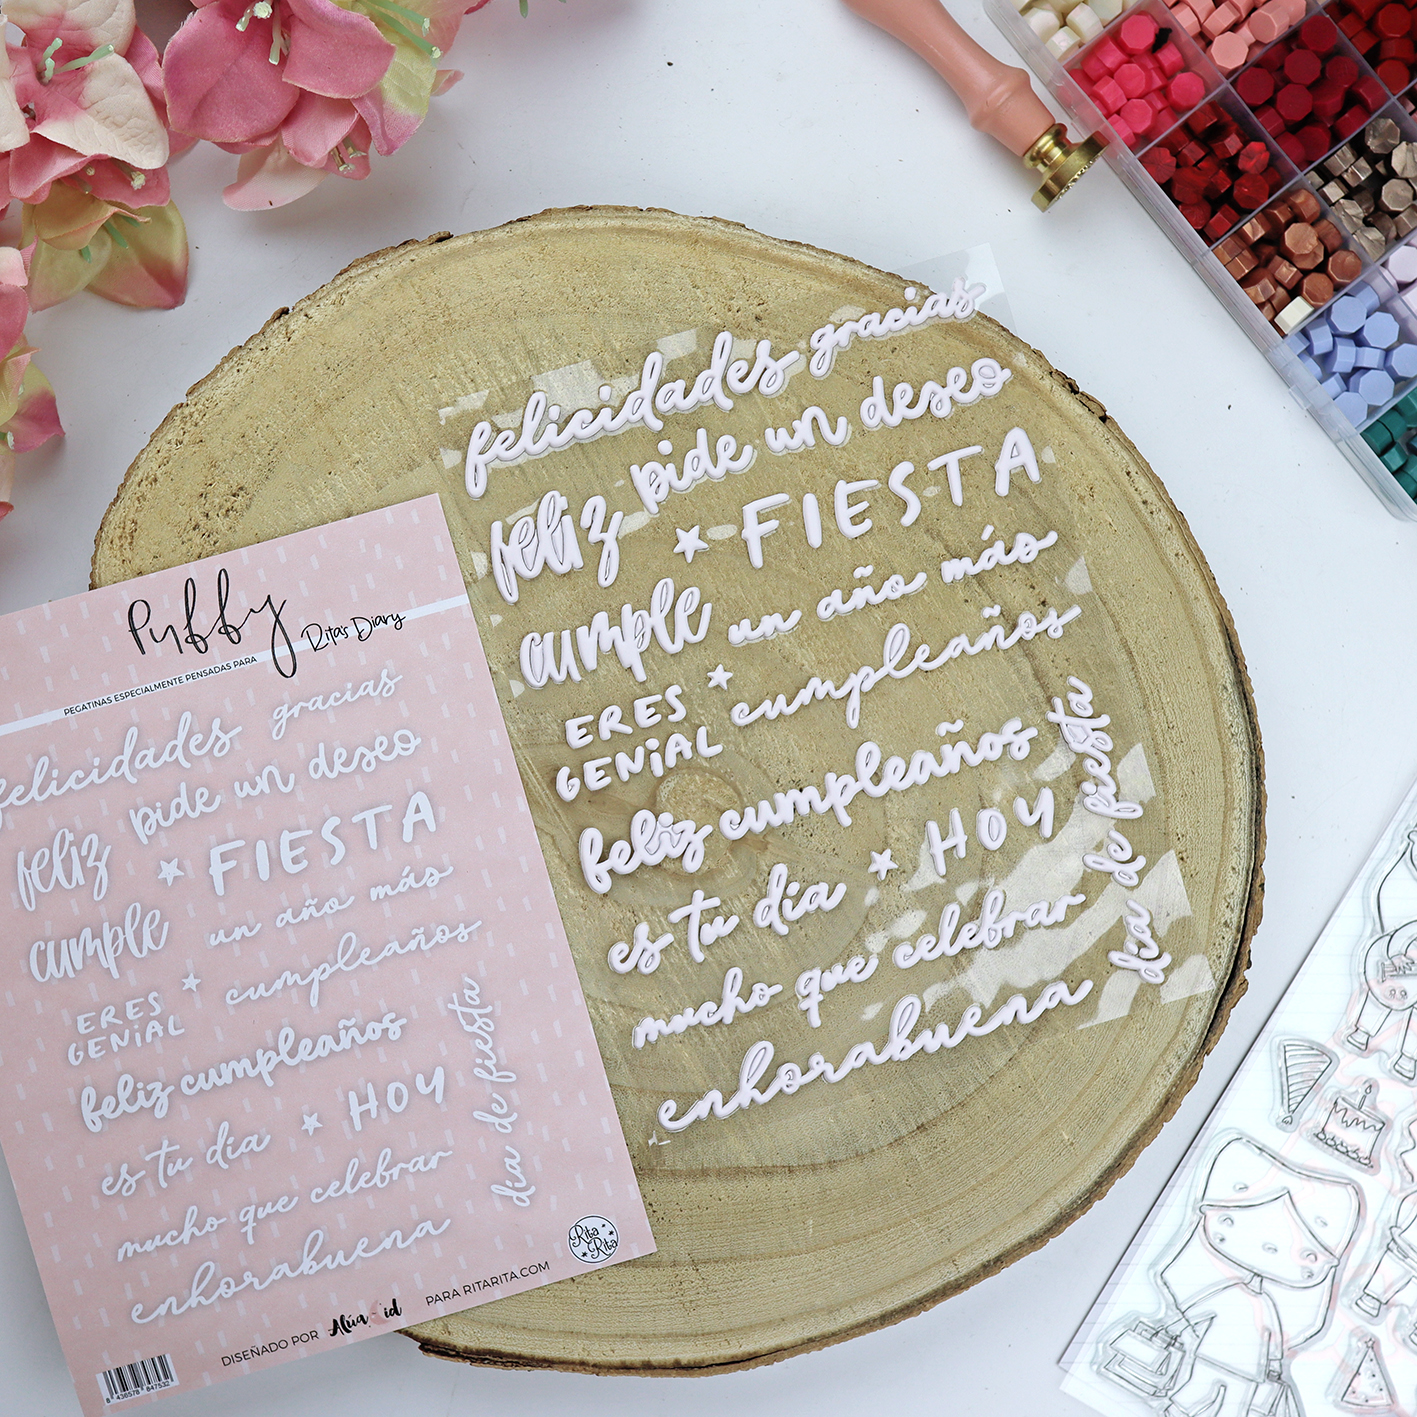 Puffy
Rita's Diary
PEGATINAS ESPECIALMENTE PENSADAS PARA
felicidades gracias
pide un deseo
feliz ★ FIESTA
cumple un año más
ERES ★ cumpleaños
GENiAL
feliz cumpleaños
es tu dia ★ HOY
mucho que celebrar
enhorabuena
dia de fiesta
Rita Rita
DISEÑADO POR Alúa Cid PARA RITARITA.COM
8 436578 847532
felicidades gracias
pide un deseo
feliz ★ FIESTA
cumple un año más
ERES ★ cumpleaños
GENiAL
feliz cumpleaños
es tu dia ★ HOY
mucho que celebrar
enhorabuena
dia de fiesta